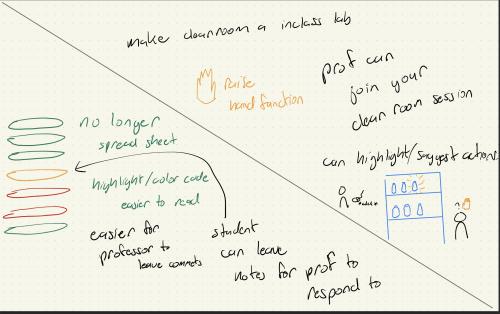 make cleanroom a inclass lab
raise
hand function
prof can
join your
clean room session
can highlight/suggest actions
no longer
spread sheet
highlight/color code
easier to read
easier for
professor to
leave commets
student
can leave
notes for prof to
respond to